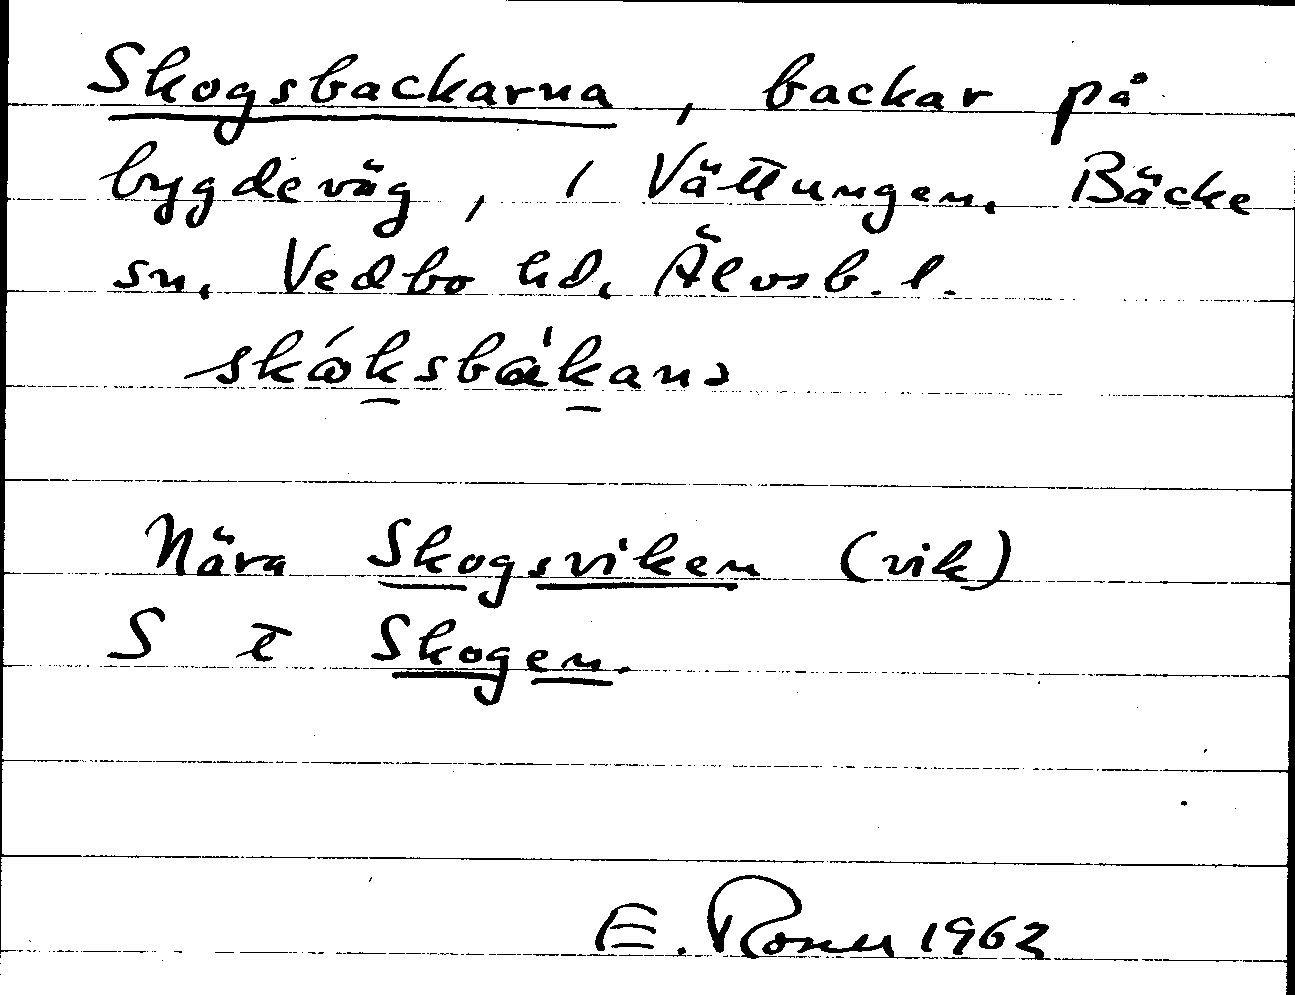 Skogsbackarna, backar på
bygdeväg, i Vättungen. Bäcke
sn. Vedbo hd. Älvsb. l.
Nära Skogsviken (vik)
S t Skogen.
E. 1962